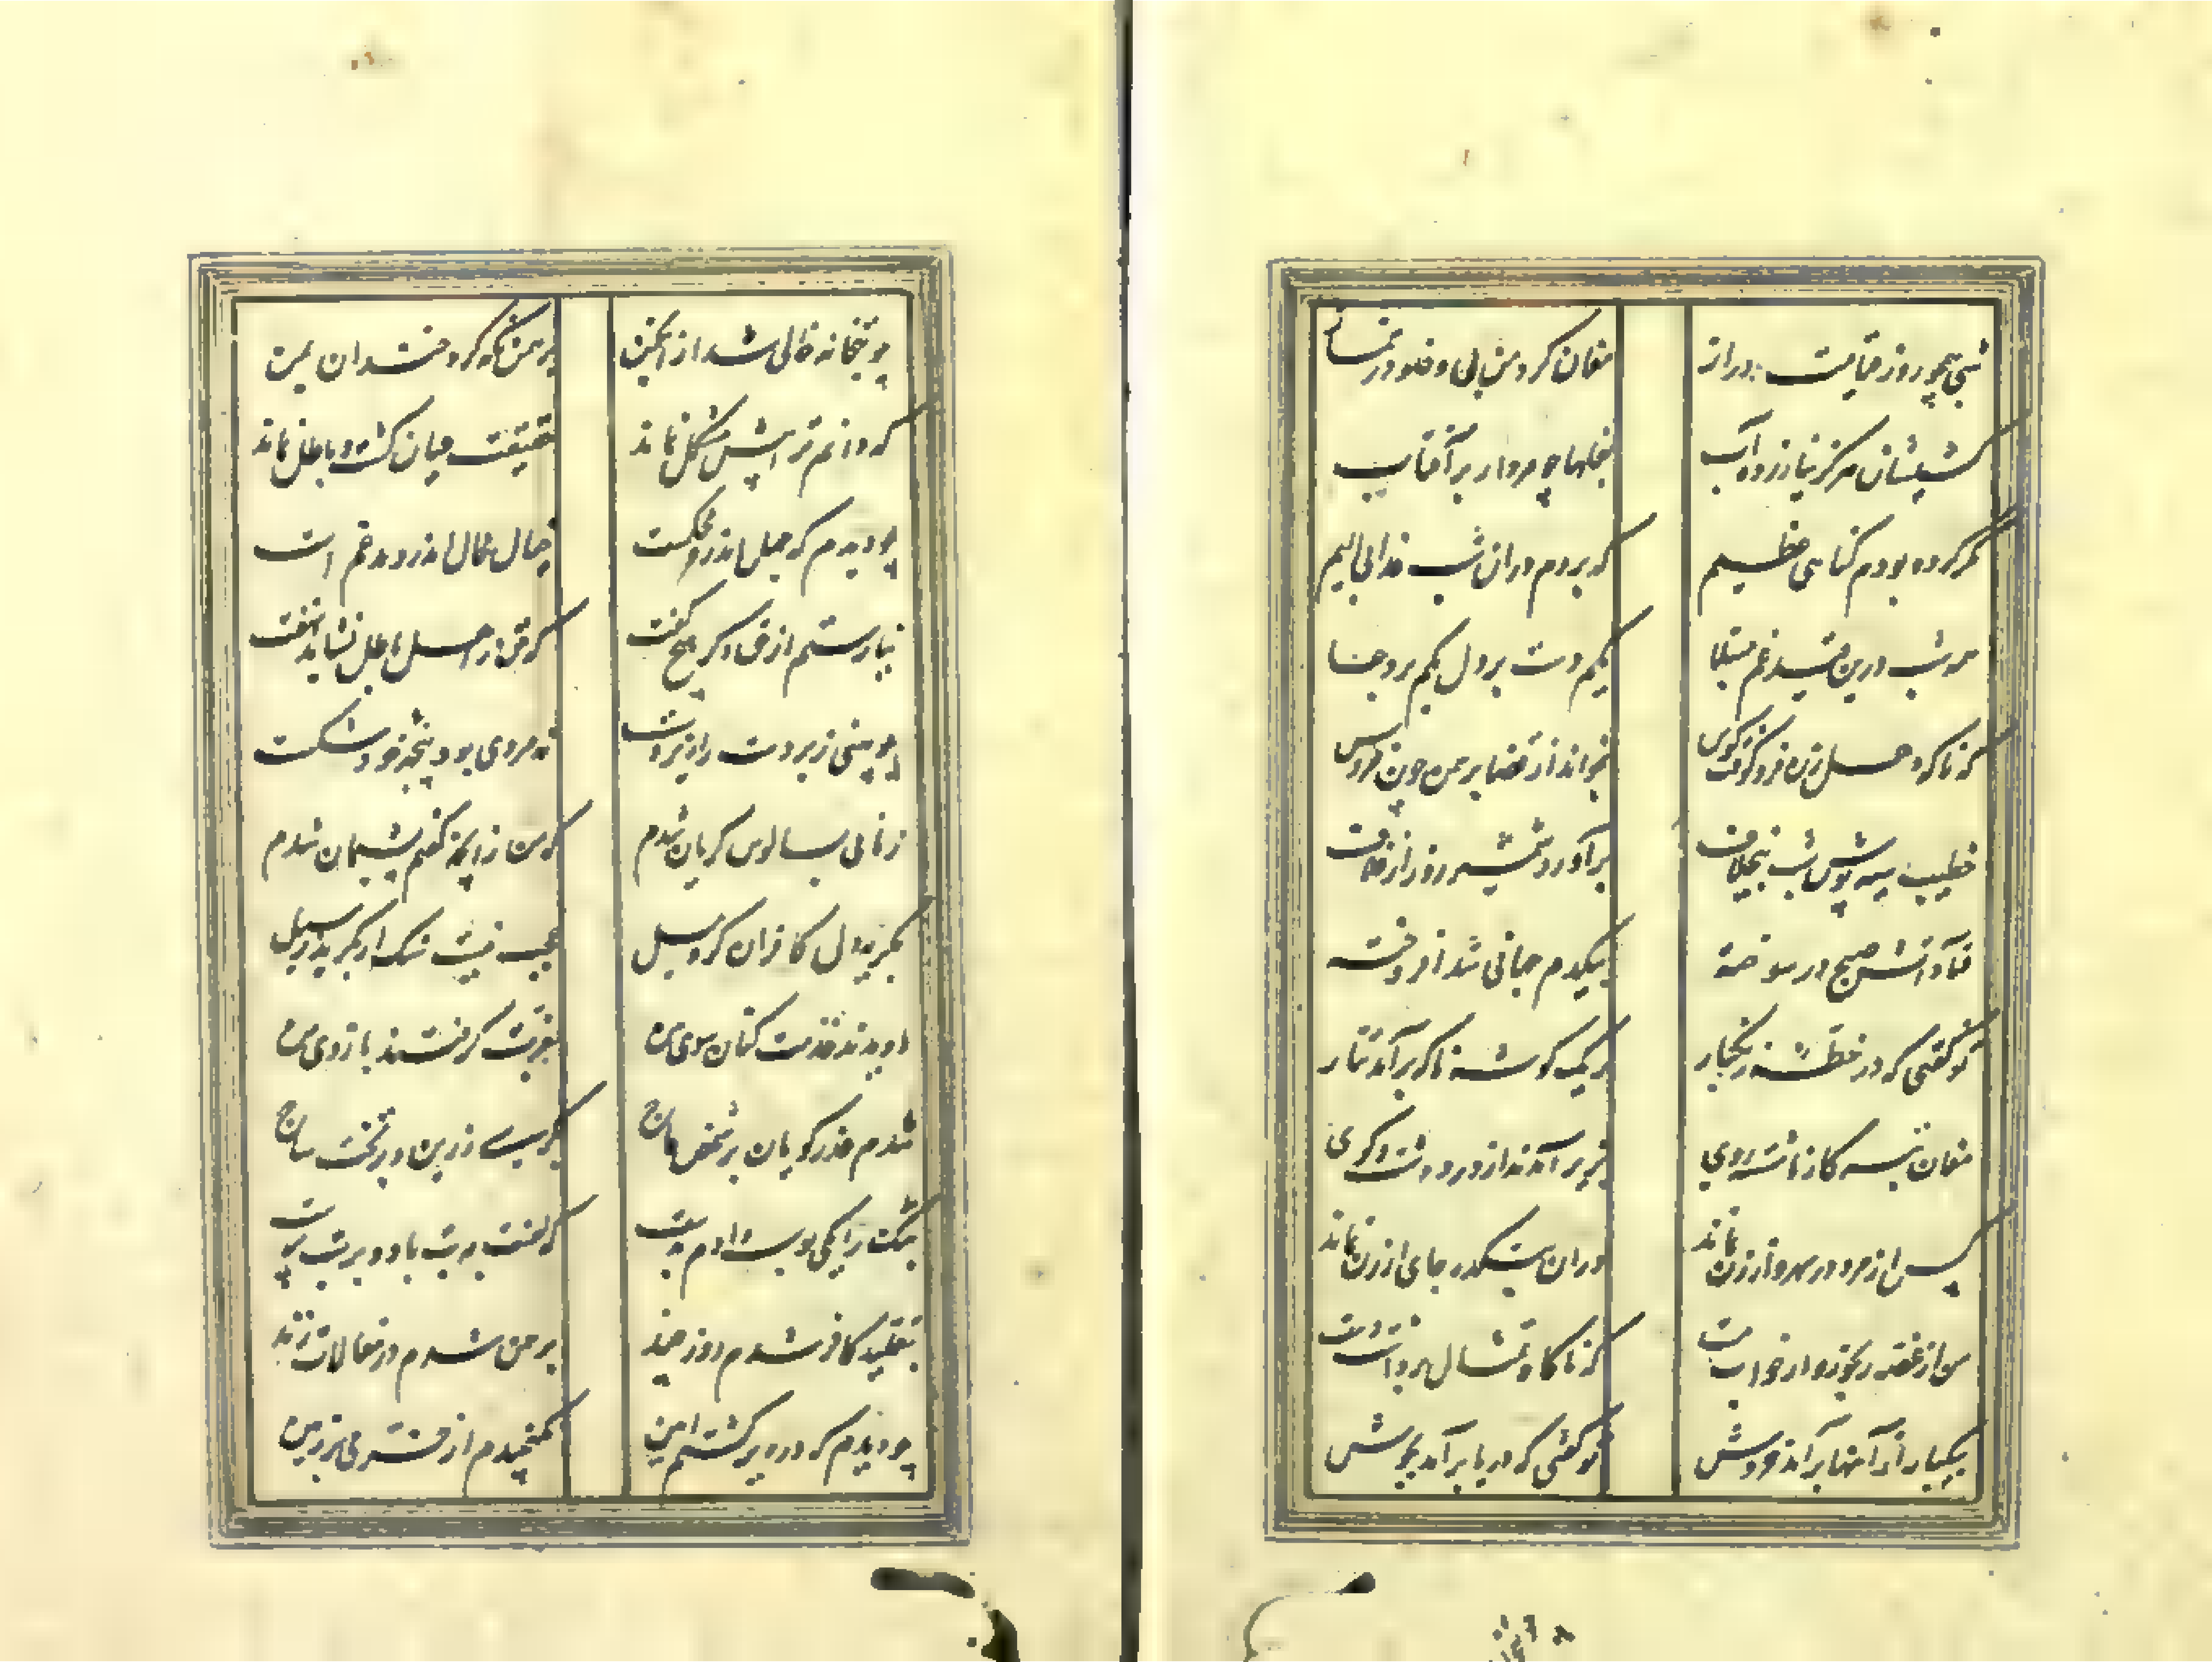 شبی همچو روز قیامت دراز مغان گرد من بی وضو در نماز
کشیشان هرگز نیازرده آب بغلها چو مردار بر آفتاب
مگر کرده بودم گناهی عظیم که بردم در آن شب عذابی الیم
همه شب درین قید غم مبتلا یکم دست بر دل یکم بر دعا
که ناگه دهل زن فرو کوفت کوس بخواند از قضا برهمن چون خروس
خطیب سیه پوش شب بیخلاف بر آورد شمشیر روز از غلاف
فتاد آتش صبح در سوخته بیکدم جهانی شد افروخته
تو گفتی که در خطه زنگبار ز یک گوشه ناگه برآمد تتار
مغان تبه کار ناشسته روی بدیر آمدند از در و دشت و کوی
کس از مرد در شهر و از زن نماند در آن بتکده جای ارزن نماند
من از غصه رنجور و از خواب مست که ناگاه تمثال برداشت دست
بیکبار از آنها برآمد خروش تو گفتی که دریا برآمد بجوش
چو بتخانه خالی شد از انجمن برهمن نگه کرد خندان بمن
که دانم ترا بیش مشکل نماند حقیقت عیان گشت و باطل نماند
چو دیدم که جهل اندرو محکمست خیال محال اندرو مدغم است
نیارستم از حق دگر هیچ گفت که حق ز اهل باطل نشاید نهفت
چو بینی زبردست را زیردست نه مردی بود پنجه خود شکست
زمانی بسالوس گریان شدم که من زانچه گفتم پشیمان شدم
بگریه دل کافران کرد میل عجب نیست سنگ ار بگردد بسیل
دویدند خدمت کنان سوی من بعزت گرفتند بازوی من
شدم عذرگویان بر شخص عاج بکرسی زرین و بر تخت ساج
بتک را یکی بوسه دادم بدست که لعنت به بت باد و بر بت پرست
بتقلید کافر شدم روز چند برهمن شدم در مقالات زند
چو دیدم که در دیر گشتم امین نگنجیدم از خرمی بر زمین